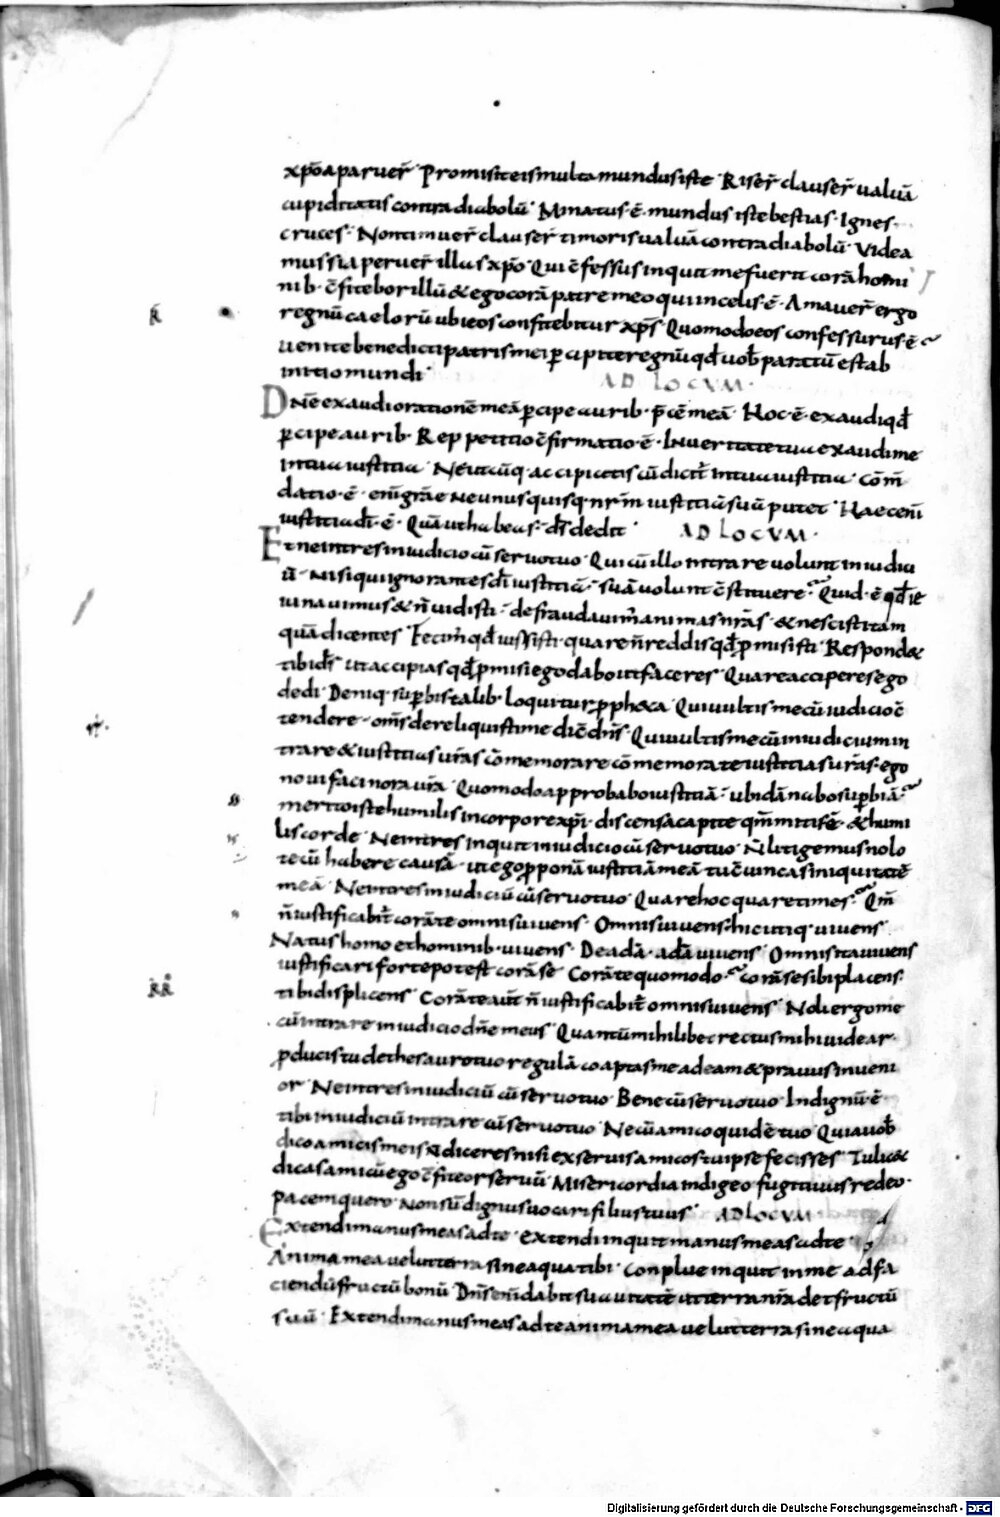 xp̄o aparuer̄ · Promisit eis multa mundus iste · Riser̄ clauser̄ ualuā
cupiditatis contra diabolū · Minatus · ē · mundus iste bestias · Ignes ·
cruces · Non timuer̄ clauser̄ timoris ualuā contra diabolū · Videa
mus si aperuer̄ illas xp̄o · Qui c̄fessus inquit me fuerit corā homi
nib · c̄fitebor illū & ego corā patre meo qui in celis · ē · Amauer̄ ergo
R̄
regnū caelorū ubi eos confitebitur xp̄s · Quomodo eos confessurus · ē
uenite benedicti patris mei p̄cipite regnū qd̄ uob̄ paratū est ab
initio mundi · AD LOCVM ·
Dn̄e exaudi orationē meā p̄cipe aurib · p̄cē meā · Hoc · ē · exaudi qd̄
p̄cipe aurib · Reppetitio c̄firmatio · ē · In ueritate tua exaudi me
in tua iustitia · Ne utcūq · accipiatis cū dicit̄ in tua iustitia · Cōm̄
datio · ē · eni gr̄ae ne unusquisq · nr̄m iustitiā suā putet · Haec eni
iustitia dī · ē · Quā ut habeas · ds̄ dedit · AD LOCVM ·
Et ne intres in iudicio cū seruo tuo · Qui cū illo intrare uolunt in iudiu
ū · nisi qui ignorantes dī iustitiā · suā uolunt c̄stituere · Quid · ē qd̄ ie
iunauimus & n̄ uidisti · defraudauim̄ animas nr̄as · & nescisti tam
quā dicentes · Fecim̄ qd̄ iussisti · quare n̄ reddis qd̄ p̄misisti · Respond&
tibi ds̄ · ut accipias qd̄ p̄misi ego dabo ut faceres · Quare acciperes ego
dedi · Deniq · sup̄bis talib · loquitur p̄ph&a · Qui uultis mecū iudicio c̄
tendere · om̄s dereliquistis me dic̄ dn̄s · Qui uultis mecū in iudicium in
trare & iustitias ur̄as cōmemorare cōmemorate iustitias ur̄as · ego
noui facinora ur̄a · Quomodo approbabo iustitiā · ubi dānabo sup̄biā ·
merito iste humilis in corpore xp̄i · discens a capite qm̄ mitis · ē · & humi
lis corde · Ne intres inquit in iudicio cū seruo tuo · N̄ litigemus nolo
tecū habere causā · ut ego p̄ponā iustitiā meā tu c̄uincas iniquitatē
meā · Ne intres in iudiciū cū seruo tuo · Quare hoc quare times · Qm̄
n̄ iustificabit̄ corā te omnis uiuens · Omnis uiuens hic utiq · uiuens
Natus homo et hominib · uiuens · De adā · adā uiuens · Omnis ita uiuens
iustificari forte potest corā se · Corā te quomodo · corā se sibi placens ·
R̄R̄
tibi displicens · Corā te aut̄ n̄ iustificabit̄ omnis uiuens · Noli ergo me
cū intrare in iudicio dn̄e meus · Quantū mihilibet rectus mihi uidear ·
p̄ducis tu de thesauro tuo regulā coaptas me ad eam & prauus inueni
or · Ne intres in iudiciū cū seruo tuo · Bene cū seruo tuo · Indignū · ē
tibi in iudiciū intrare cū seruo tuo · Nec cū amico quidē tuo · Quia uob̄
dico amicis meis n̄ diceres nisi ex seruis amicos tu ipse fecisses · Tu lic&
dicas amicū ego c̄fiteor seruū · Misericordia indigeo fugitiuus redeo ·
pacem quero · non sū dignus uocari filius tuus · AD LOCVM
Extendi manus meas ad te · extendi inquit manus meas ad te ·
Anima mea uelut terra sine aqua tibi · Conplue inquit in me ad fa
ciendū fructū bonū · Dn̄s eni dabit suauitatē ut terra nr̄a det fructū
suū · Extendi manus meas ad te anima mea uelut terra sine aqua